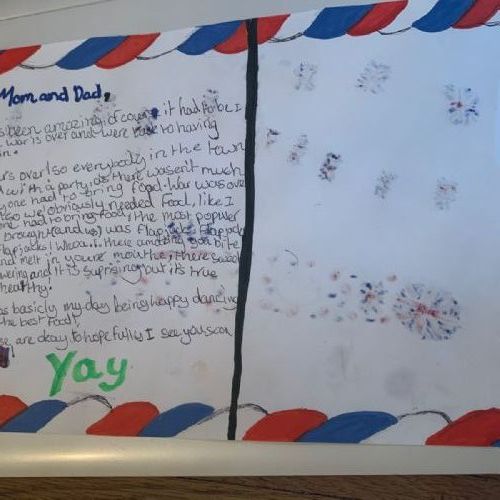 Mom and Dad,
been amazing of course it had to be I
war is over and were back to having
over! so everybody in the town
with a party as there wasen't much
one had to bring food. War was over
so we obviously needed food, like I
one had to bring food, the most popular
brought (and us) was flapjacks
flapjacks! Whoa... there amazing you bite
nd melt in youre mouthe, there sweet
and it is suprising but it's true
healthy.
as basicly my day being happy dancing
the best food!
are okay to hopefully I see you soon
Yay